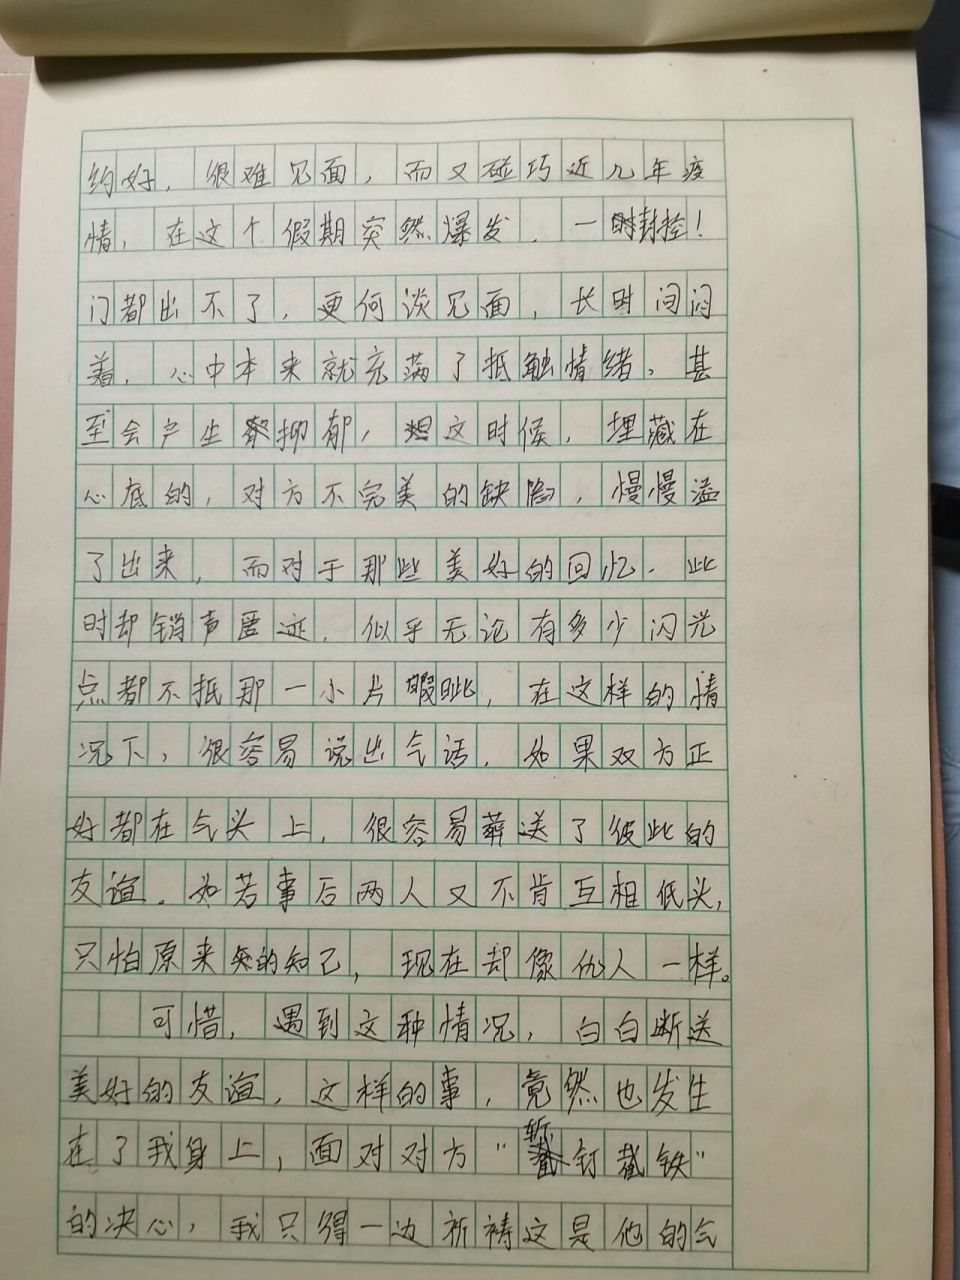 约好，很难见面，而又碰巧近几年疫
情，在这个假期突然爆发．一时封控！
门都出不了，更何谈见面，长时间闷
着，心中本来就充满了抵触情绪，甚
至会产生抑郁，这时候，埋藏在
心底的，对方不完美的缺陷，慢慢溢
了出来，而对于那些美好的回忆．此
时却销声匿迹．似乎无论有多少闪光
点都不抵那一小片瑕疵，在这样的情
况下，很容易说出气话．如果双方正
好都在气头上，很容易葬送了彼此的
友谊。如若事后两人又不肯互相低头，
只怕原来的知己，现在却像仇人一样。
可惜，遇到这种情况，白白断送
美好的友谊，这样的事，竟然也发生
在了我身上，面对对方“斩钉截铁”
的决心，我只得一边祈祷这是他的气